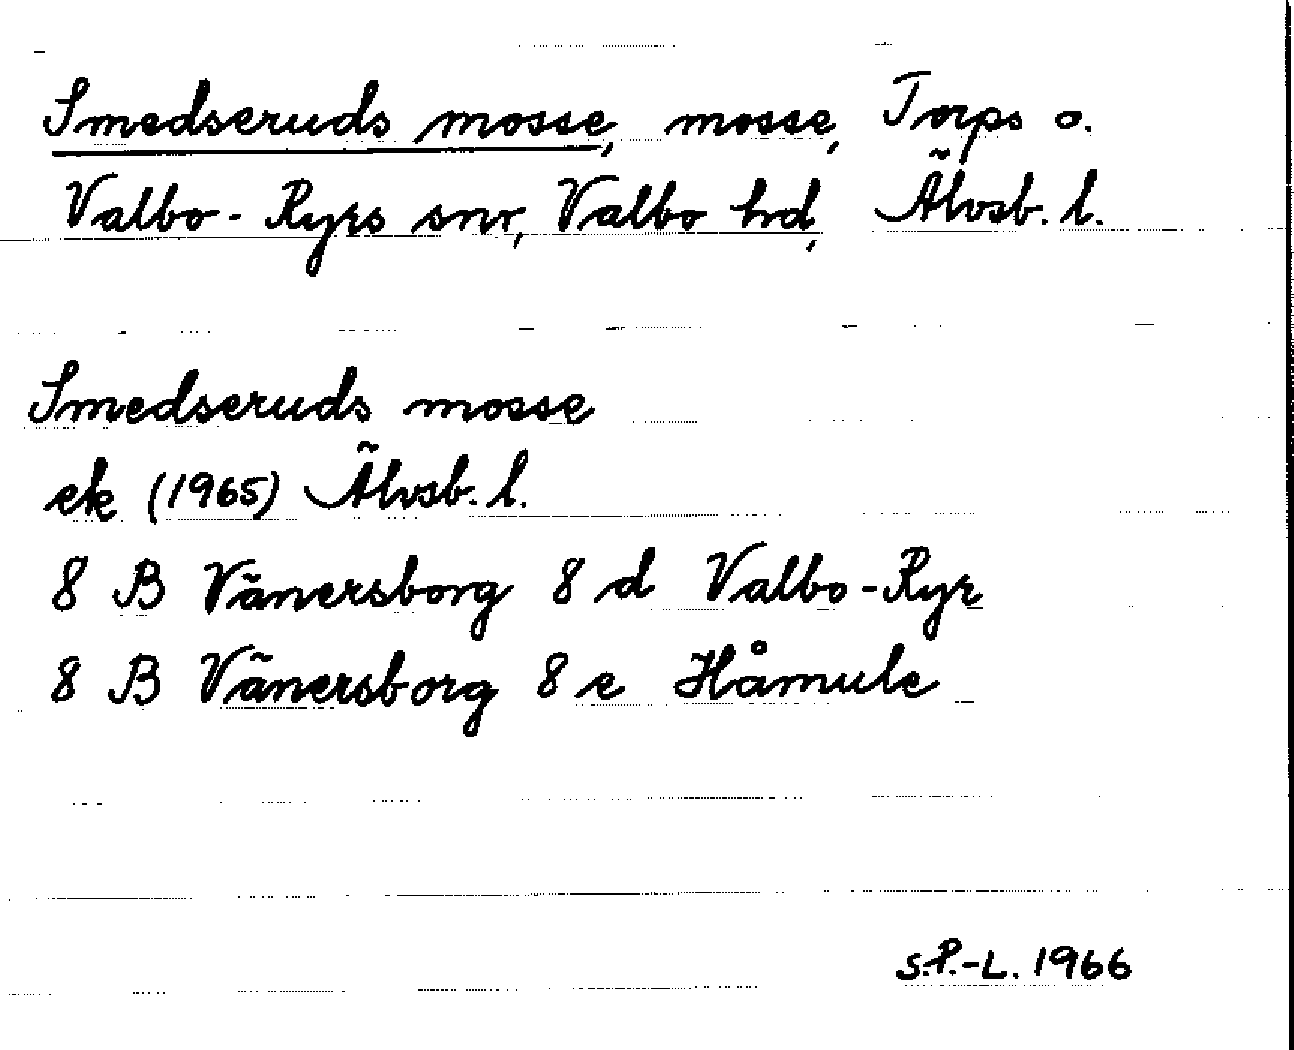 Smedseruds mosse, mosse, Torps o.
Valbo-Ryrs snr, Valbo hd, Älvsb. l.
Smedseruds mosse
ek (1965) Älvsb. l.
8 B Vänersborg 8 d Valbo-Ryr
8 B Vänersborg 8 e Håmule
S.P.-L. 1966